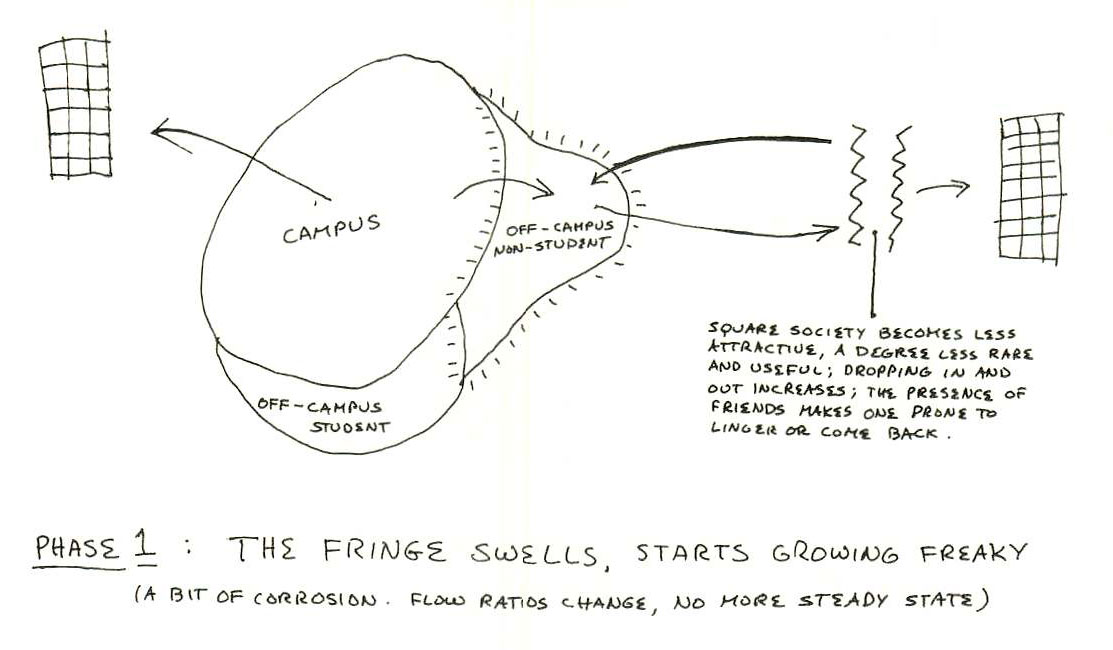 CAMPUS
OFF-CAMPUS
NON-STUDENT
OFF-CAMPUS
STUDENT
SQUARE SOCIETY BECOMES LESS
ATTRACTIVE, A DEGREE LESS RARE
AND USEFUL; DROPPING IN AND
OUT INCREASES; THE PRESENCE OF
FRIENDS MAKES ONE PRONE TO
LINGER OR COME BACK.
PHASE 1 : THE FRINGE SWELLS, STARTS GROWING FREAKY
(A BIT OF CORROSION. FLOW RATIOS CHANGE, NO MORE STEADY STATE)